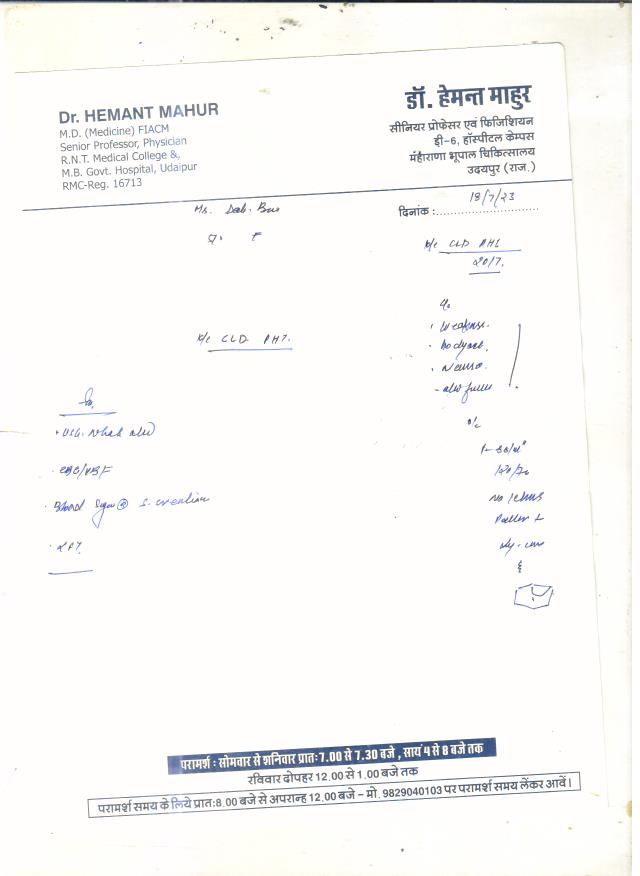 Dr. HEMANT MAHUR
M.D. (Medicine) FIACM
Senior Professor, Physician
R.N.T. Medical College &,
M.B. Govt. Hospital, Udaipur
RMC-Reg. 16713
डॉ. हेमन्त माहुर
सीनियर प्रोफेसर एवं फिजिशियन
डी-6, हॉस्पीटल केम्पस
मंहाराणा भूपाल चिकित्सालय
उदयपुर (राज.)
दिनांक : 18/7/23
K/c CLD PHT
20/7.
K/c CLD PHT.
c/o
· Weakness.
· bodyache.
· Nausea.
o/e
120/70
No icterus
Pallor +
CBC/
· Blood Sugar S. creatinine
परामर्श : सोमवार से शनिवार प्रातः 7.00 से 7.30 बजे , सायं 4 से 8 बजे तक
रविवार दोपहर 12.00 से 1.00 बजे तक
परामर्श समय के लिये प्रातः 8.00 बजे से अपरान्ह 12.00 बजे - मो. 9829040103 पर परामर्श समय लेंकर आवें।